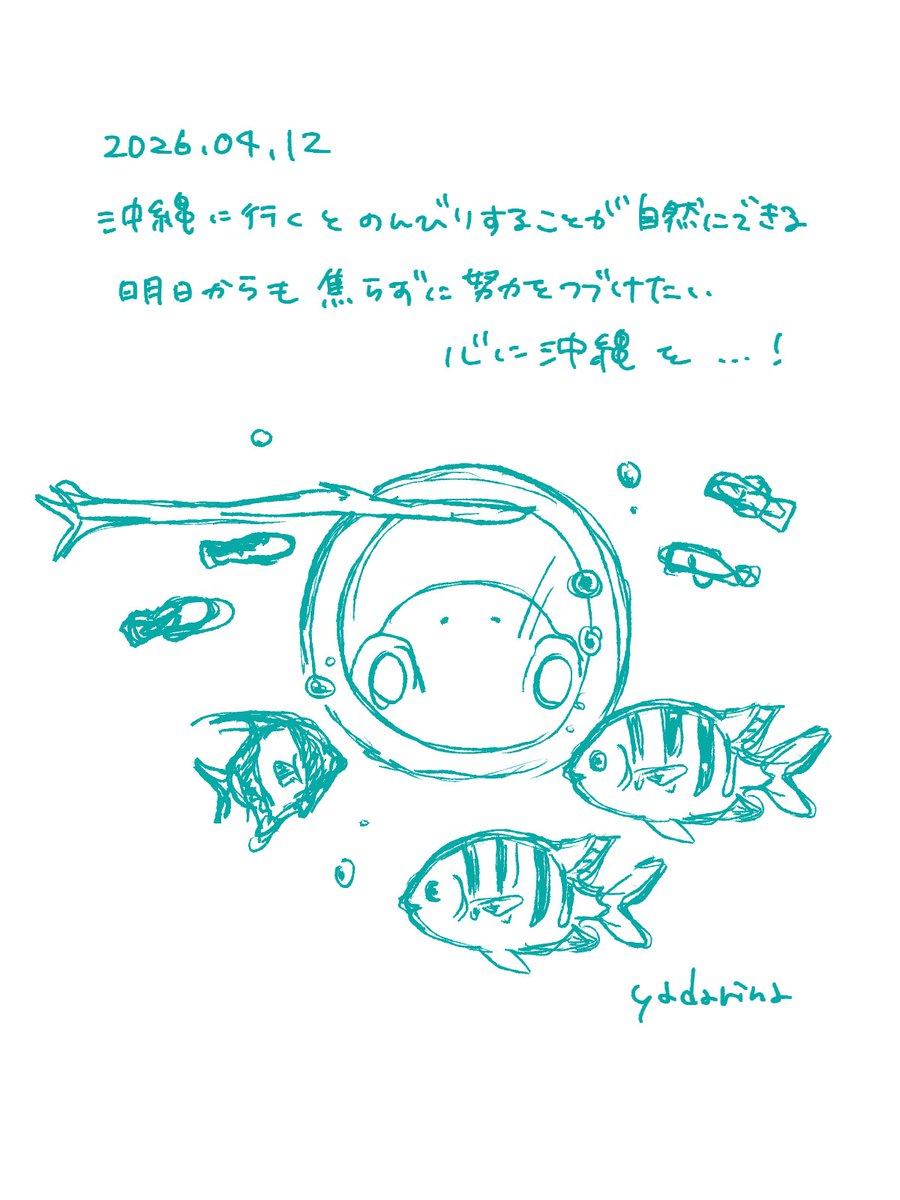 2026.04.12
沖縄に行くとのんびりすることが自然にできる
明日からも焦らずに努力をつづけたい
心に沖縄を…!
yadarina